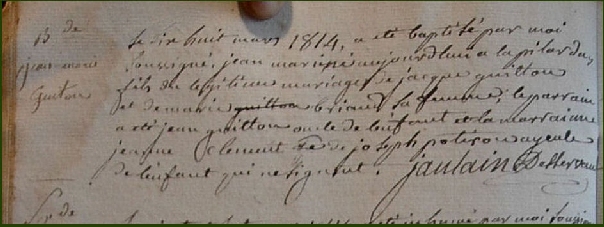 B de
jean marie
Guiton
le dix huit mars 1814, a été baptisé par moi
soussigné, jean marie né aujourd'hui a
fils du legitime mariage de jacque guitton
et de marie guitton briand sa femme; le parrain
a été jean guitton oncle de l'enfant et la marraine
jeanne Clement fe de joseph poteron ayeule
de l'enfant qui ne signent. jaulain Desservant